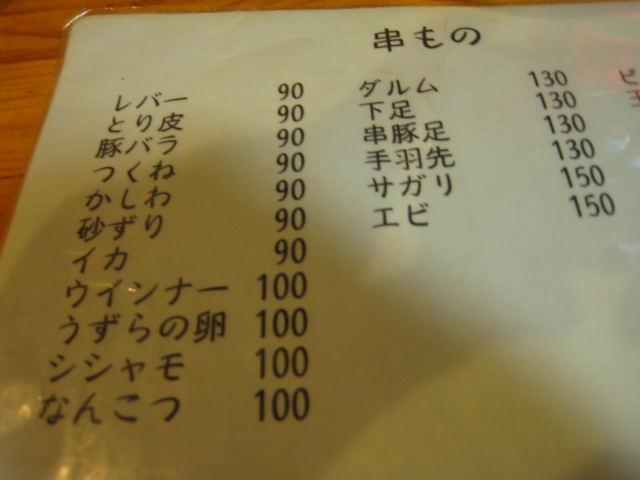 串もの
レバー 90
とり皮 90
豚バラ 90
つくね 90
かしわ 90
砂ずり 90
イカ 90
ウインナー 100
うずらの卵 100
シシャモ 100
なんこつ 100
ダルム 130
下足 130
串豚足 130
手羽先 130
サガリ 150
エビ 150